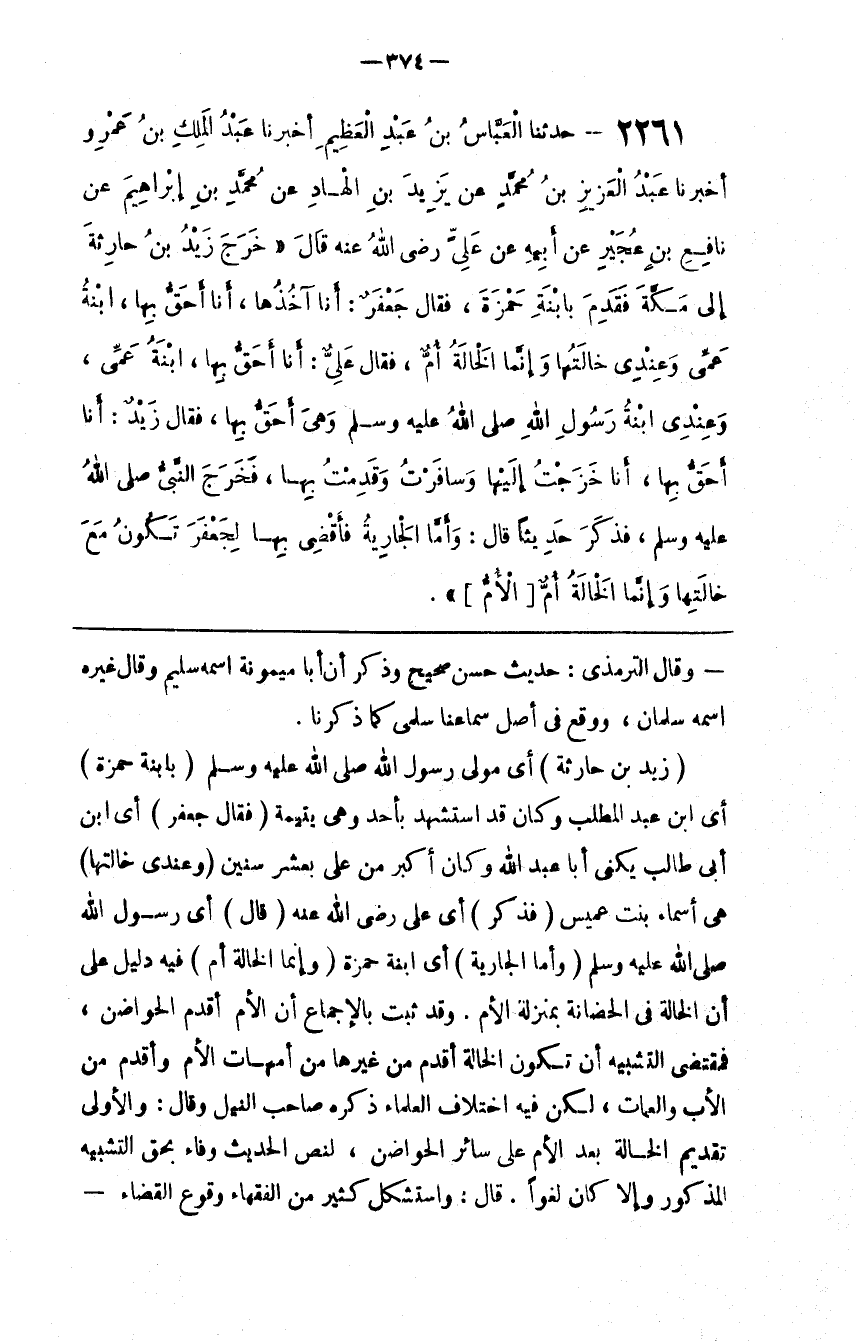 —٣٧٤—
٢٢٦١ – حدثنا الْعَبَّاسُ بنُ عَبْدِ الْعَظِيمِ أخبرنا عَبْدُ الَملِكِ بنُ عَمْرٍو
أخبرنا عَبْدُ الْعَزِيزِ بنُ مُحمَّدٍ عن يَزِيدَ بنِ الْهَـادِ عن مُحمَّدِ بنِ إبْراهِيمَ عن
نافِـعِ بنِ عُجَيْرٍ عن أَبِيهِ عن عَلِيٍّ رضى اللهُ عنه قالَ « خَرَجَ زَيْدُ بنُ حارِثةَ
إلى مَـكَّةَ فَقَدِمَ بابْنَةِ حَمْزَةَ ، فقال جَعْفَرٌ : أَنا آخُذُها ، أَنا أَحَقُّ بِها ، ابْنةُ
عَمِّى وَعِنْدِى خالَتُها وَإِنَّما الَخالَةُ أُمٌّ ، فقال عَلِيٌّ : أَنا أَحَقُّ بِها ، ابْنَةُ عَمِّى ،
وَعِنْدِى ابْنةُ رَسُولِ اللهِ صلى اللهُ عليه وسـلم وَهِىَ أَحَقُّ بِها ، فقال زَيْدٌ : أَنا
أَحَقُّ بِها ، أَنا خَرَجْتُ إلَيْها وَسافَرْتُ وَقَدِمْتُ بِهـا ، فَخَرَجَ النَّبىُّ صلى اللهُ
عليه وسلم ، فذَكَرَ حَدِيثاً قال : وَأَمَّا الَجارِيةُ فأَقْضِى بِهـا لِجَعْفَرَ تَـكُونُ مَعَ
خالَتِها وَإِنَّما الَخالَةُ أُمٌّ [ الْأُمُّ ] » .
— وقال الترمذى : حديث حسن صحيح وذكر أن أبا ميمونة اسمه سليم وقال غيره
اسمه سلمان ، ووقع فى أصل سماعنا سلمى كما ذكرنا .
( زيد بن حارثة ) أى مولى رسول الله صلى الله عليه وسـلم ( بابنة حمزة )
أى ابن عبد المطلب وكان قد استشهد بأحد وهى يتيمة ( فقال جعفر ) أى ابن
أبى طالب يكنى أبا عبد الله وكان أكبر من على بعشر سنين (وعندى خالتها)
هى أسماء بنت عميس ( فذكر ) أى على رضى الله عنه ( قال ) أى رسـول الله
صلى الله عليه وسلم ( وأما الجارية ) أى ابنة حمزة ( وإنما الخالة أم ) فيه دليل على
أن الخالة فى الحضانة بمنزلة الأم . وقد ثبت بالإجماع أن الأم أقدم الحواضن ،
فمقتضى التشبيه أن تـكون الخالة أقدم من غيرها من أمهـات الأم وأقدم من
الأب والعمات ، لـكن فيه اختلاف العلماء ذكره صاحب النيل وقال : والأولى
تقديم الخـالة بعد الأم على سائر الحواضن ، لنص الحديث وفاء بحق التشبيه
المذكور وإلا كان لغواً . قال : واستشكل كثير من الفقهاء وقوع القضاء —